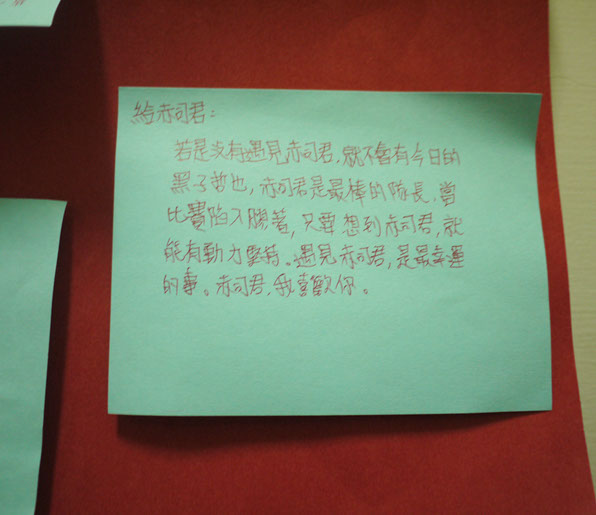 給赤司君：
若是沒有遇見赤司君，就不會有今日的
黑子哲也，赤司君是最棒的隊長，當
比賽陷入膠著，只要想到赤司君，就
能有動力堅持。遇見赤司君，是最幸運
的事。赤司君，我喜歡你。